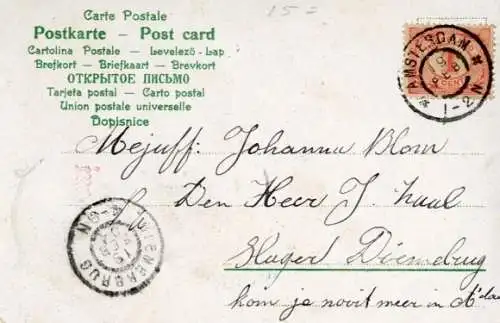 15=
Carte Postale
Postkarte – Post card
Cartolina Postale – Levelező-Lap
Brefkort – Briefkaart – Brevkort
ОТКРЫТОЕ ПИСЬМО
Tarjeta postal – Carto postal
Union postale universelle
Dopisnice
AMSTERDAM
19
FEB
1-2N
CENT
Mejuff: Johanna Blom
Den Heer J.
Slager Diemerbrug
kom je nooit meer in A'dam
DIEMERBRUG